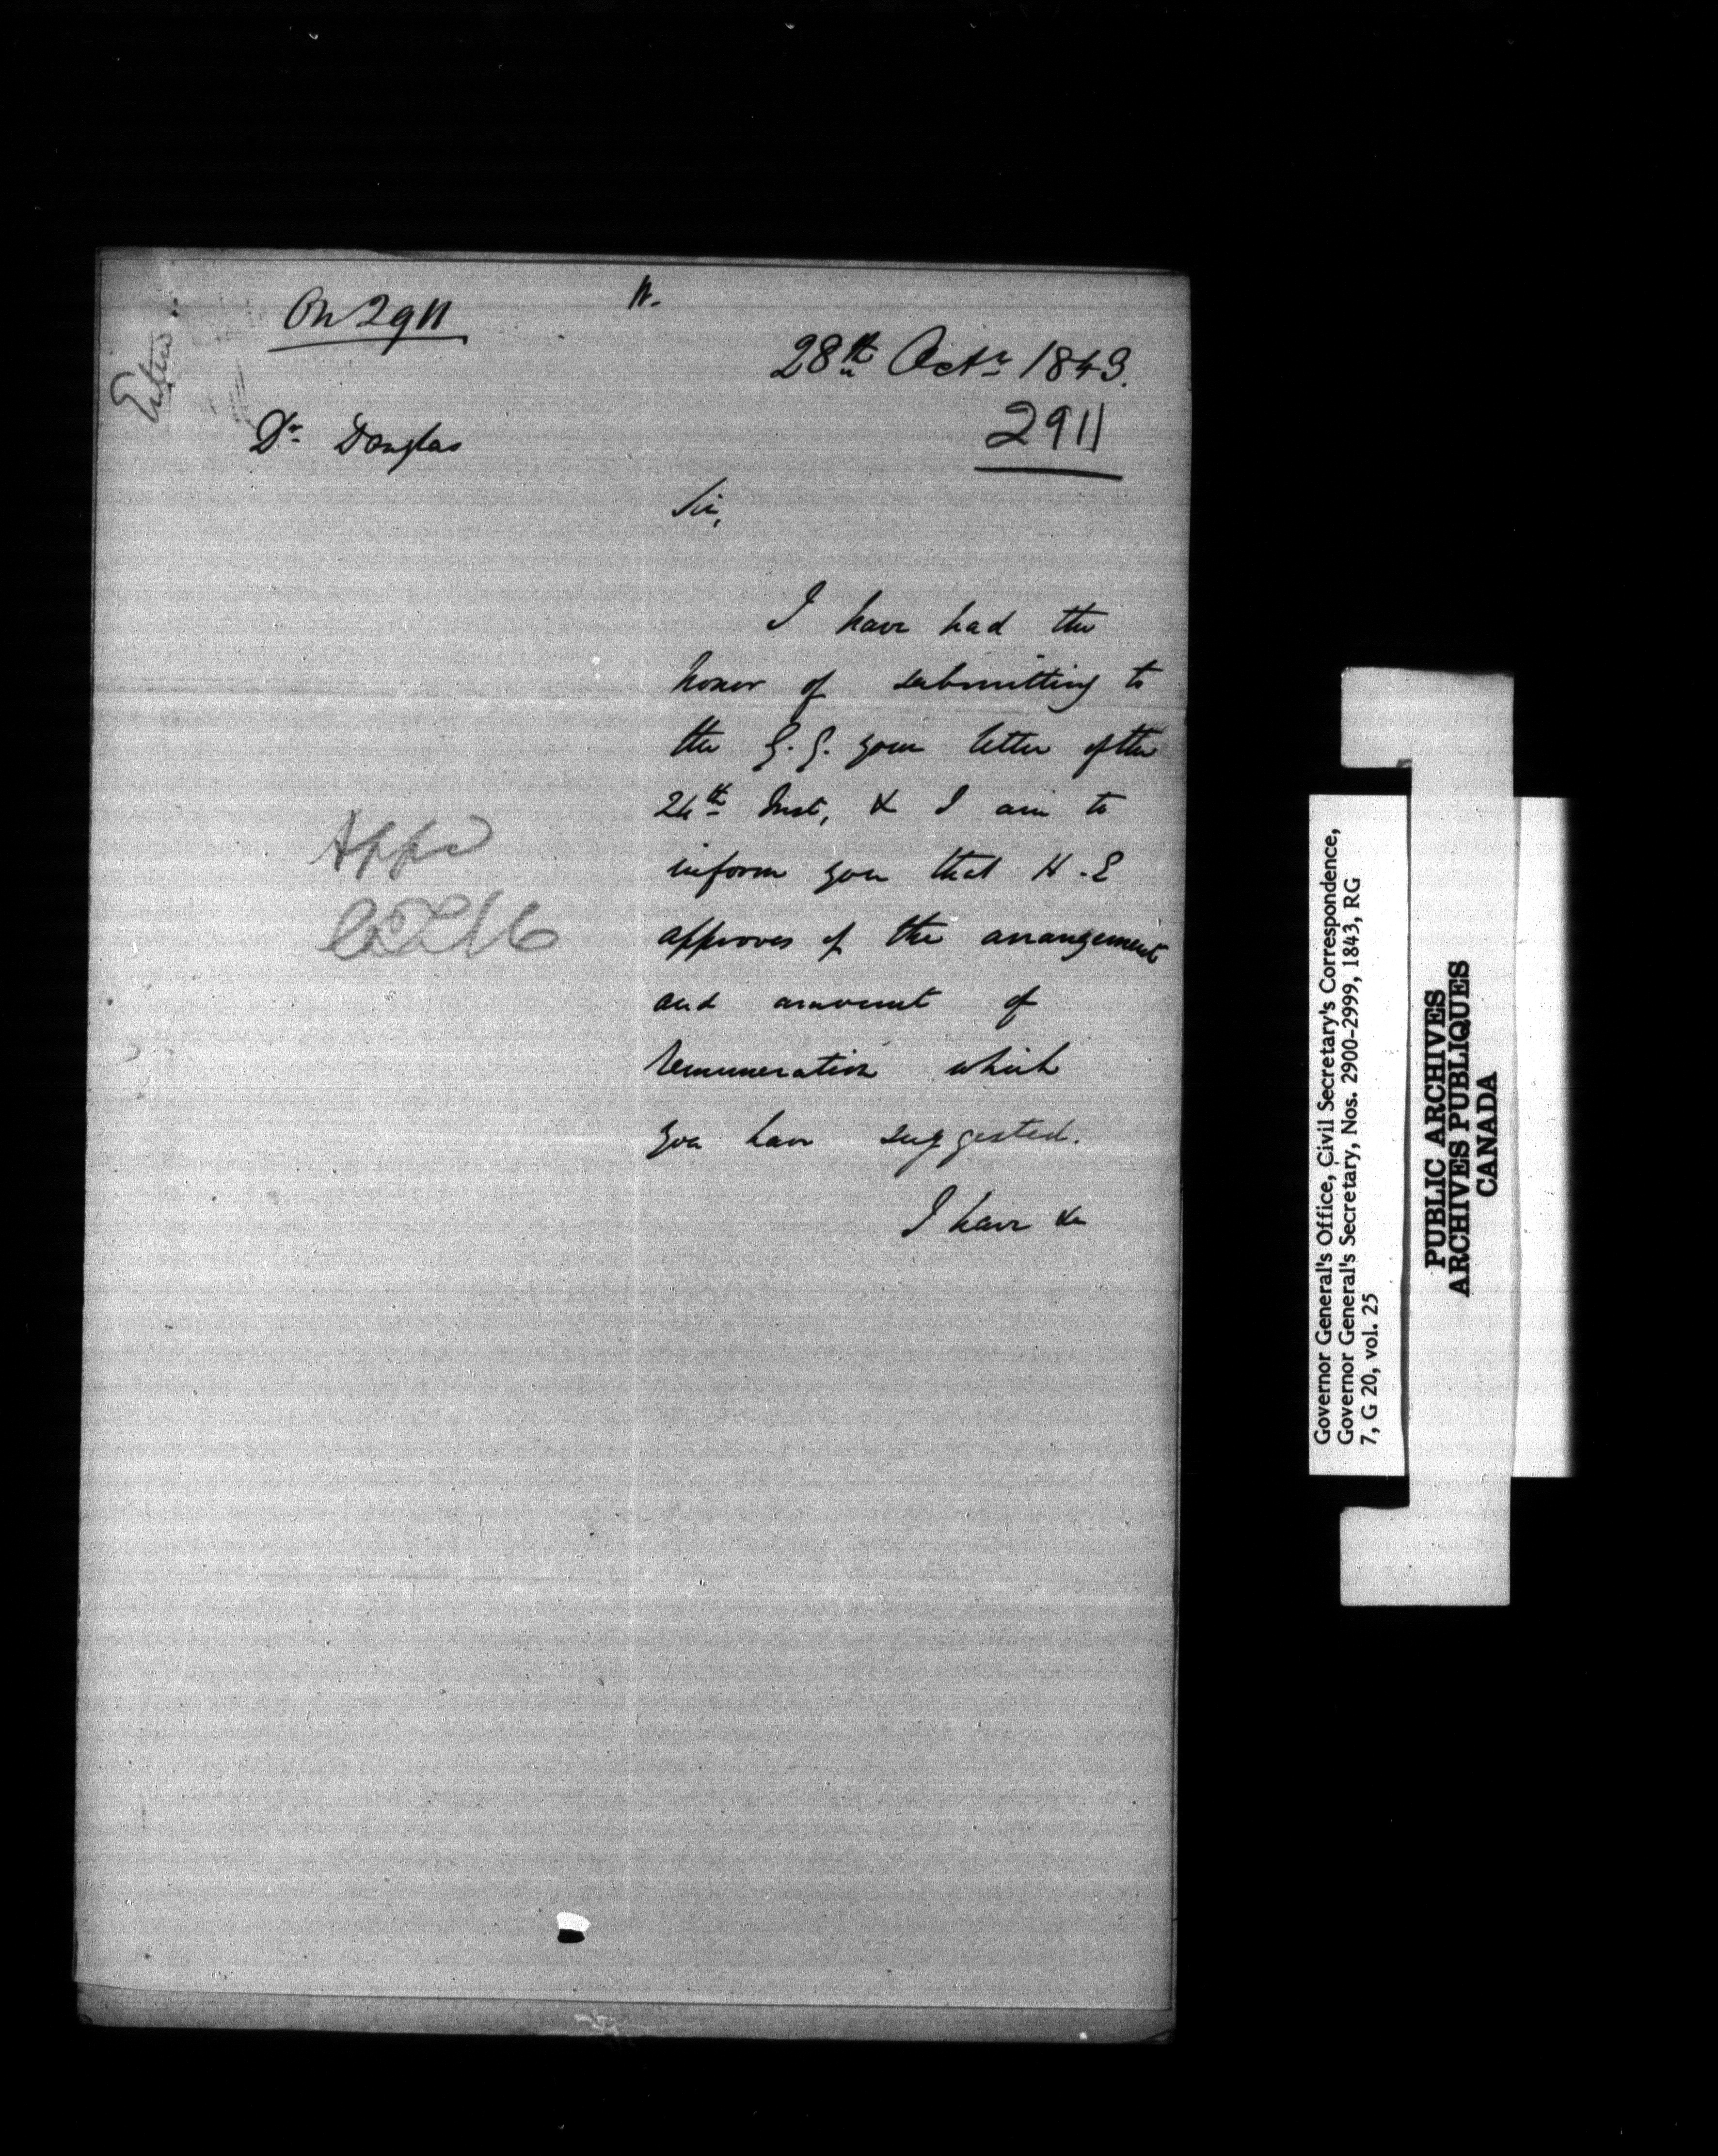 On 2911
28th Octr 1843.
2911
Dr Douglas
Sir,
I have had the
honor of submitting to
the G.G. your letter of the
24th Inst, & I am to
inform you that H.E
approves of the arrangement
and amount of
remuneration which
you have suggested.
I have &c
Appd
Governor General's Office, Civil Secretary's Correspondence,
Governor General's Secretary, Nos. 2900-2999, 1843, RG
7, G 20, vol. 25
PUBLIC ARCHIVES
ARCHIVES PUBLIQUES
CANADA